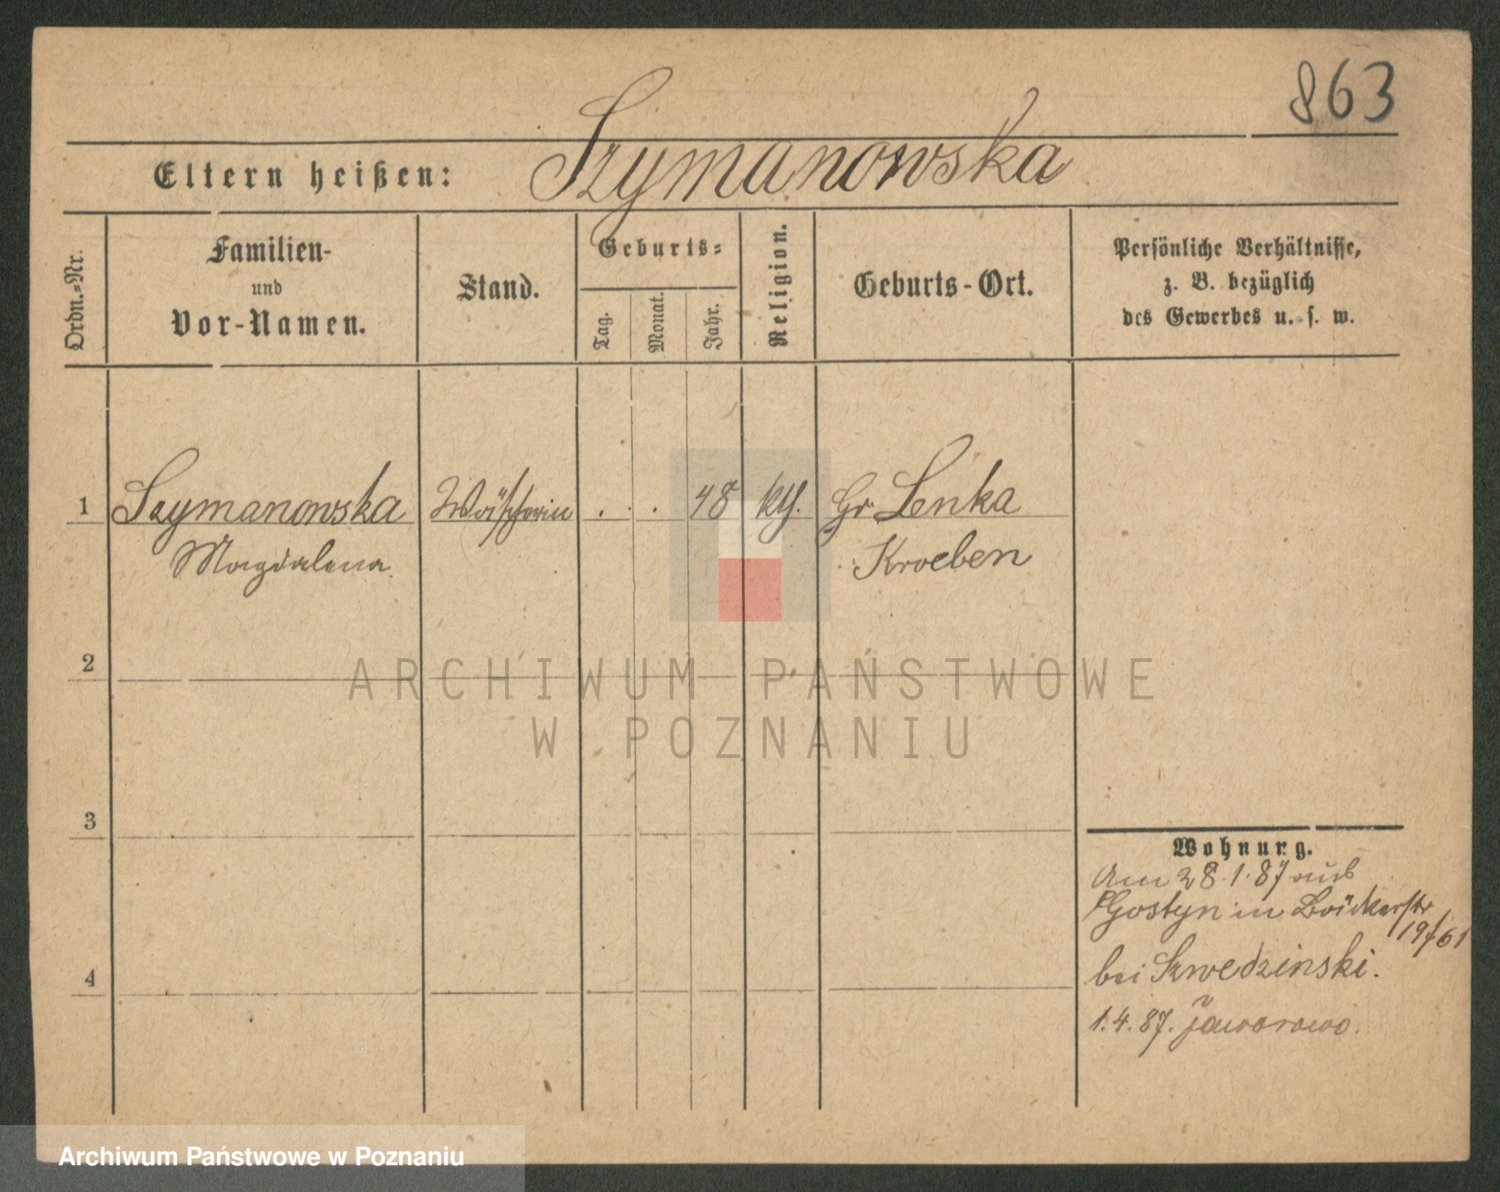 863
Eltern heißen: Szymanowska
Ordn.-Nr.
Familien-
und
Vor-Namen.
Stand.
Geburts-
Tag.
Monat.
Jahr.
Religion.
Geburts-Ort.
Persönliche Verhältnisse,
z. B. bezüglich
des Gewerbes u. s. w.
1 Szymanowska Wäscherin . . . 48 kth. Gr. Lenka
Magdalena. Kroeben
2
3
4
Wohnung.
Am 28.1.87 aus
Gostyn in Bäckerstr
19/61
bei Szwedzinski.
1.4.87. Jaworowo.
ARCHIWUM PAŃSTWOWE
W POZNANIU
Archiwum Państwowe w Poznaniu